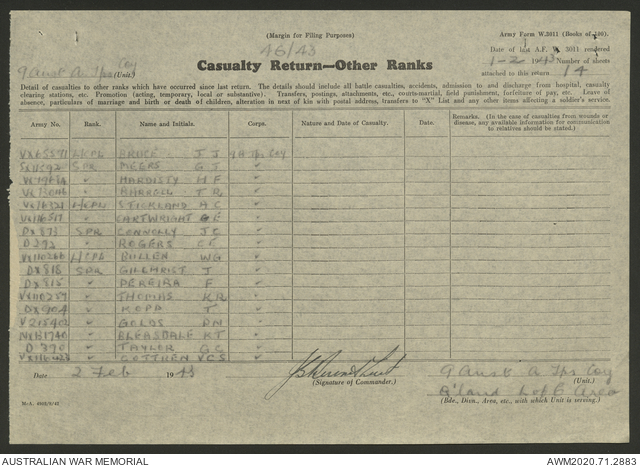 (Margin for Filing Purposes)
Army Form W.3011 (Books of 100).
46/43
Date of last A.F. W. 3011 rendered
9 Aust A Tps Coy (Unit.)
Casualty Return—Other Ranks
1-2-1943 Number of sheets
attached to this return 14
Detail of casualties to other ranks which have occurred since last return. The details should include all battle casualties, accidents, admission to and discharge from hospital, casualty
clearing stations, etc. Promotion (acting, temporary, local or substantive). Transfers, postings, attachments, etc., courts-martial, field punishment, forfeiture of pay, etc. Leave of
absence, particulars of marriage and birth or death of children, alteration in next of kin with postal address, transfers to "X" List and any other items affecting a soldier's service.
Army No. Rank. Name and Initials. Corps. Nature and Date of Casualty. Date. Remarks. (In the case of casualties from wounds or
disease, any available information for communication
to relatives should be stated.)
L/CPL BRUCE J J 9 A Tps Coy
SPR MEERS G J
HARDISTY H F
BARRELL T R
L/CPL STICKLAND A C
CARTWRIGHT G E
DX873 SPR CONNOLLY J C
D292 ROGERS C F
L/CPL BULLEN W G
DX818 SPR GILCHRIST J
PEREIRA F
THOMAS K R
KOPP T
GOLDS D N
BLEASDALE K T
D 370 TAYLOR G C
COTTREN V C S
Date 2 Feb 1943
(Signature of Commander.)
9 Aust A Tps Coy
(Unit.)
Q'land L of C Area
(Bde., Divn., Area, etc., with which Unit is serving.)
AUSTRALIAN WAR MEMORIAL
AWM2020.71.2883